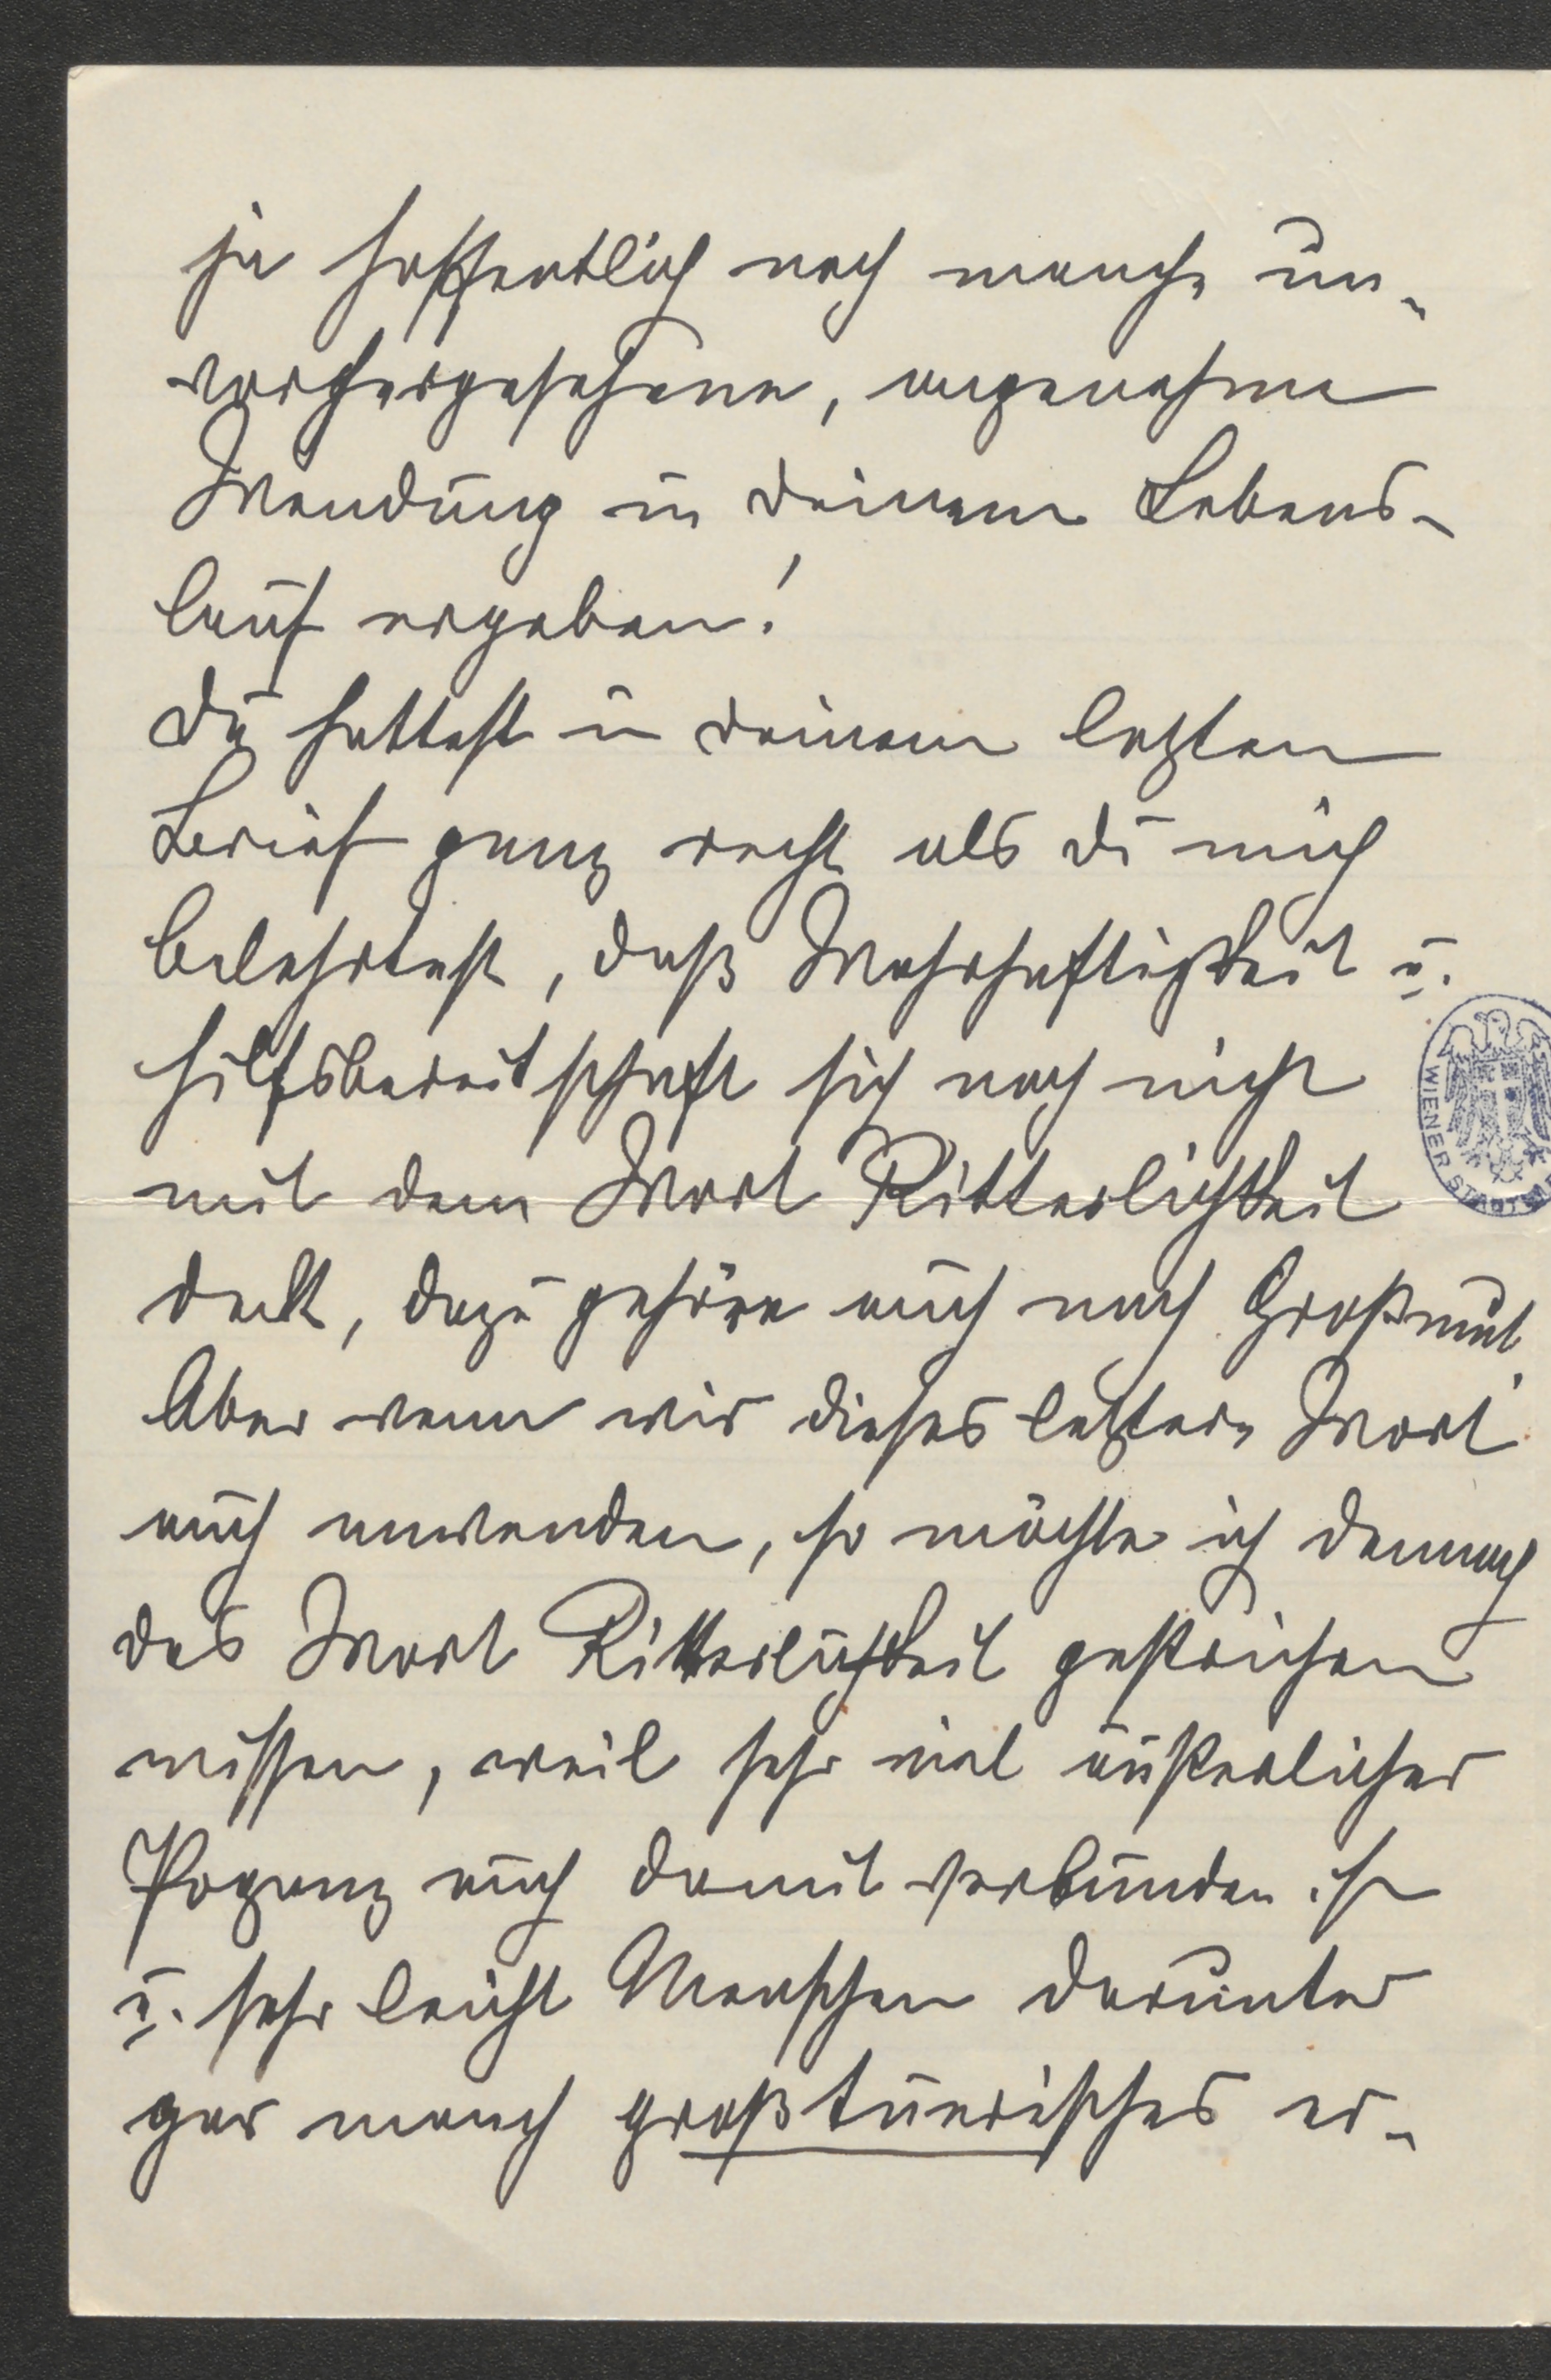 ja hoffentlich noch manche un-
vorhergesehene, angenehme
Wendung in deinem Lebens-
lauf ergeben!
Du hattest in deinem letzten
Brief ganz recht als du mich
belehrtest, daß Wahrhaftigkeit u.
Hilfsbereitschaft sich noch nicht
mit dem Wort Ritterlichkeit
deckt, dazu gehöre auch noch Großmut.
Aber wenn wir dieses letztere Wort
auch anwenden, so möchte ich dennoch
das Wort Ritterlichkeit gestrichen
wissen, weil sehr viel äußerlicher
Popanz auch damit verbunden ist
u. sehr leicht Menschen darunter
gar manch großtuerisches er-
WIENER STADT